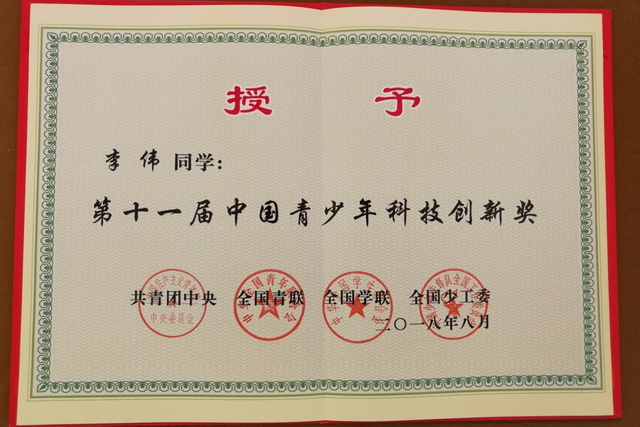 授 予
李伟 同学：
第十一届中国青少年科技创新奖
共青团中央 全国青联 全国学联 全国少工委
二〇一八年八月